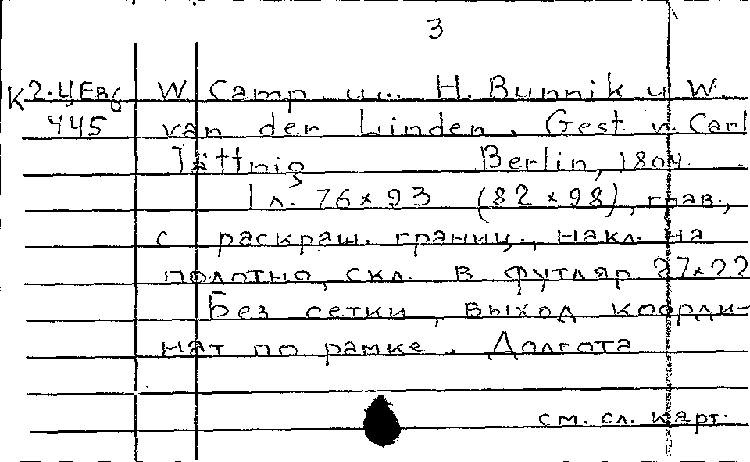 3
К2-ЦЕв6 W Camp u. H. Bunnik u W.
445 van der Linden. Gest v. Carl
Jättnig Berlin, 1804.
1 л. 76 × 93 (82 × 98), грав.,
с раскраш. границ., накл. на
полотно, скл. в футляр 27×22
Без сетки, выход коорди-
нат по рамке. Долгота
см. сл. карт.